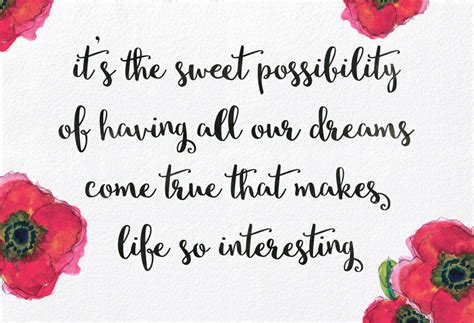 it's the sweet possibility
of having all our dreams
come true that makes
life so interesting